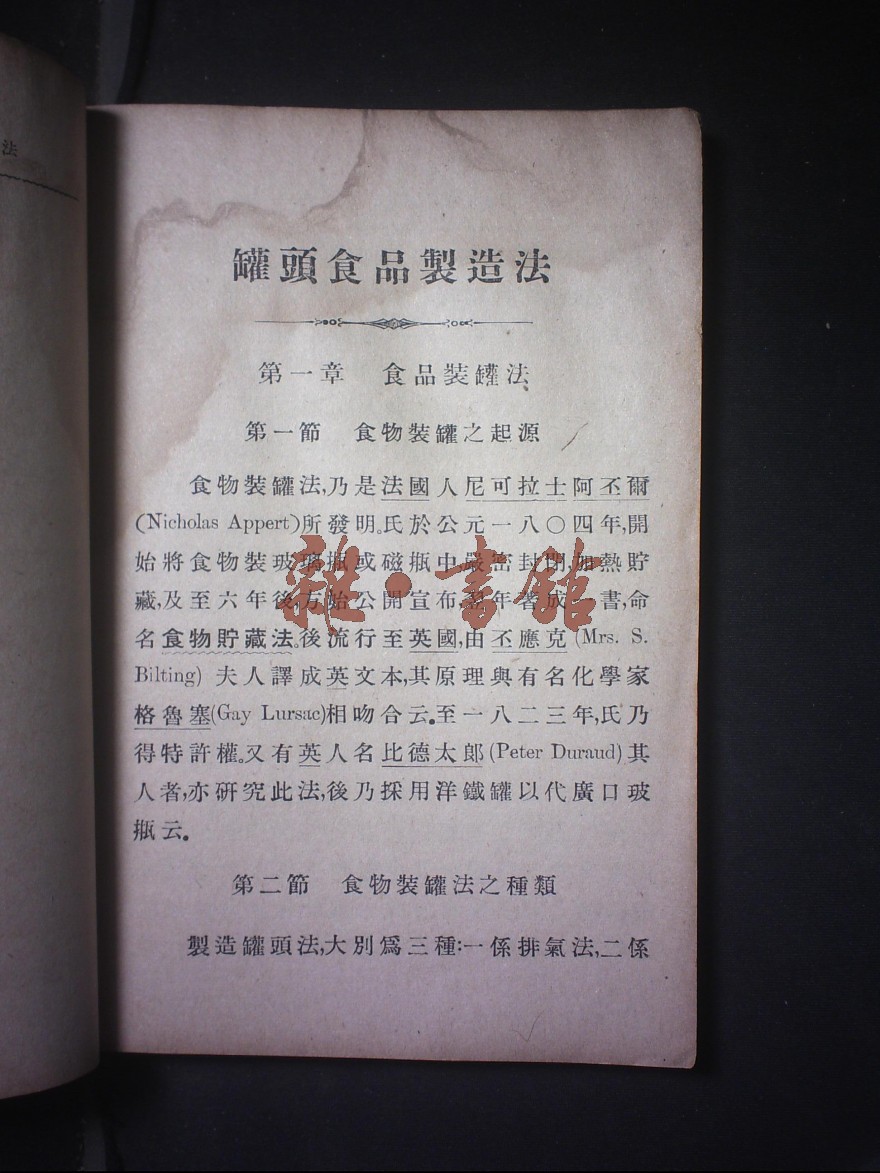 法
罐頭食品製造法
第一章 食品裝罐法
第一節 食物裝罐之起源
食物裝罐法,乃是法國人尼可拉士阿丕爾
(Nicholas Appert)所發明。氏於公元一八〇四年,開
始將食物裝玻璃瓶或磁瓶中嚴密封閉,加熱貯
藏,及至六年後,方始公開宣布,翌年著成一書,命
名食物貯藏法。後流行至英國,由丕應克(Mrs. S.
Bilting) 夫人譯成英文本,其原理與有名化學家
格魯塞(Gay Lursac)相吻合云。至一八二三年,氏乃
得特許權。又有英人名比德太郎(Peter Duraud)其
人者,亦研究此法,後乃採用洋鐵罐以代廣口玻
瓶云。
第二節 食物裝罐法之種類
製造罐頭法,大別爲三種:一係排氣法,二係
雜·書館